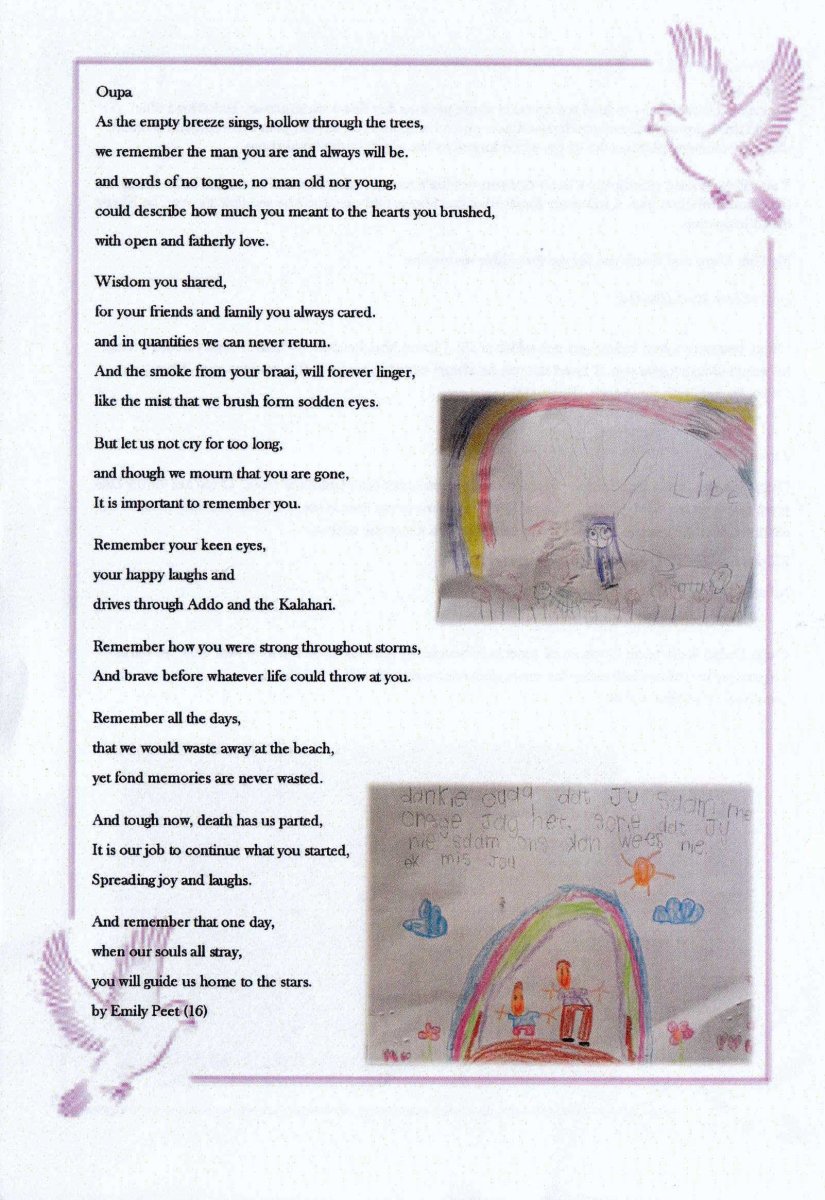 Oupa
As the empty breeze sings, hollow through the trees,
we remember the man you are and always will be.
and words of no tongue, no man old nor young,
could describe how much you meant to the hearts you brushed,
with open and fatherly love.
Wisdom you shared,
for your friends and family you always cared.
and in quantities we can never return.
And the smoke from your braai, will forever linger,
like the mist that we brush form sodden eyes.
But let us not cry for too long,
and though we mourn that you are gone,
It is important to remember you.
Remember your keen eyes,
your happy laughs and
drives through Addo and the Kalahari.
Remember how you were strong throughout storms,
And brave before whatever life could throw at you.
Remember all the days,
that we would waste away at the beach,
yet fond memories are never wasted.
And tough now, death has us parted,
It is our job to continue what you started,
Spreading joy and laughs.
And remember that one day,
when our souls all stray,
you will guide us home to the stars.
by Emily Peet (16)
dankie dat Ju
het. dat Ju
nie kan wees nie.
ek mis Jou